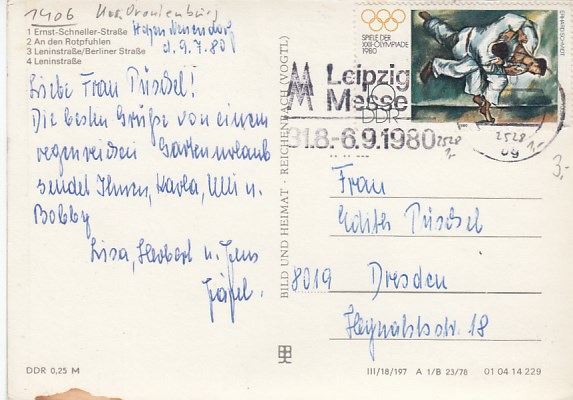 1406
Kr. Oranienburg
1 Ernst-Schneller-Straße
2 An den Rotpfuhlen
3 Leninstraße/Berliner Straße
4 Leninstraße
Hohen Neuendorf
d. 9.7.80
Liebe Frau Püschel!
Die besten Grüße von einem
regenreichen Gartenurlaub
sendet Ihnen, Karla, Ulli u.
Bobby
Lisa, Herbert u. Jens
DDR 0,25 M
BILD UND HEIMAT · REICHENBACH (VOGTL)
SPIELE DER
XXII. OLYMPIADE
1980
10
DDR
ERHARD SCHMIDT
Leipzig
Messe
31.8.-6.9.1980
2528
1,-
2528
1,-
3,-
Frau
Edith Püschel
8019 Dresden
18
III/18/197 A 1/B 23/78 01 04 14 229